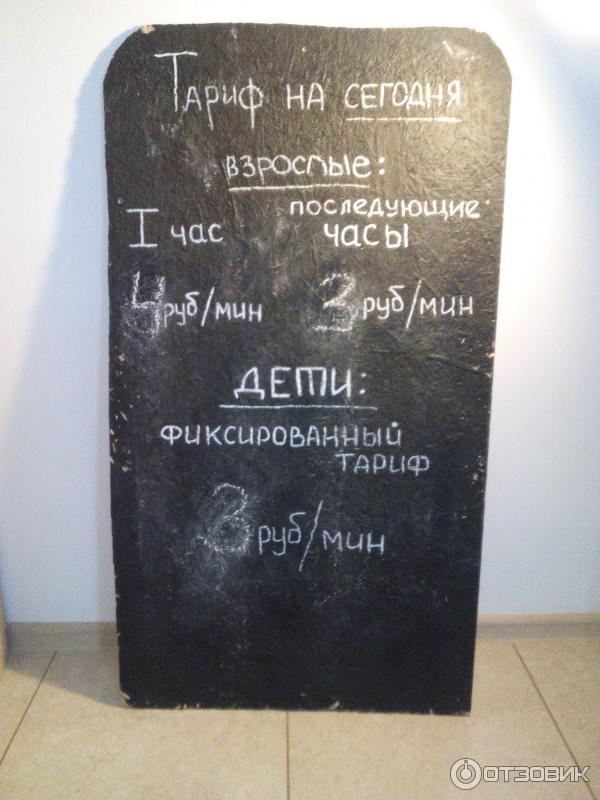 Тариф на сегодня
взрослые:
I час
последующие
часы
4 руб/мин
руб/мин
Дети:
фиксированный
тариф
руб/мин
ОТЗОВИК